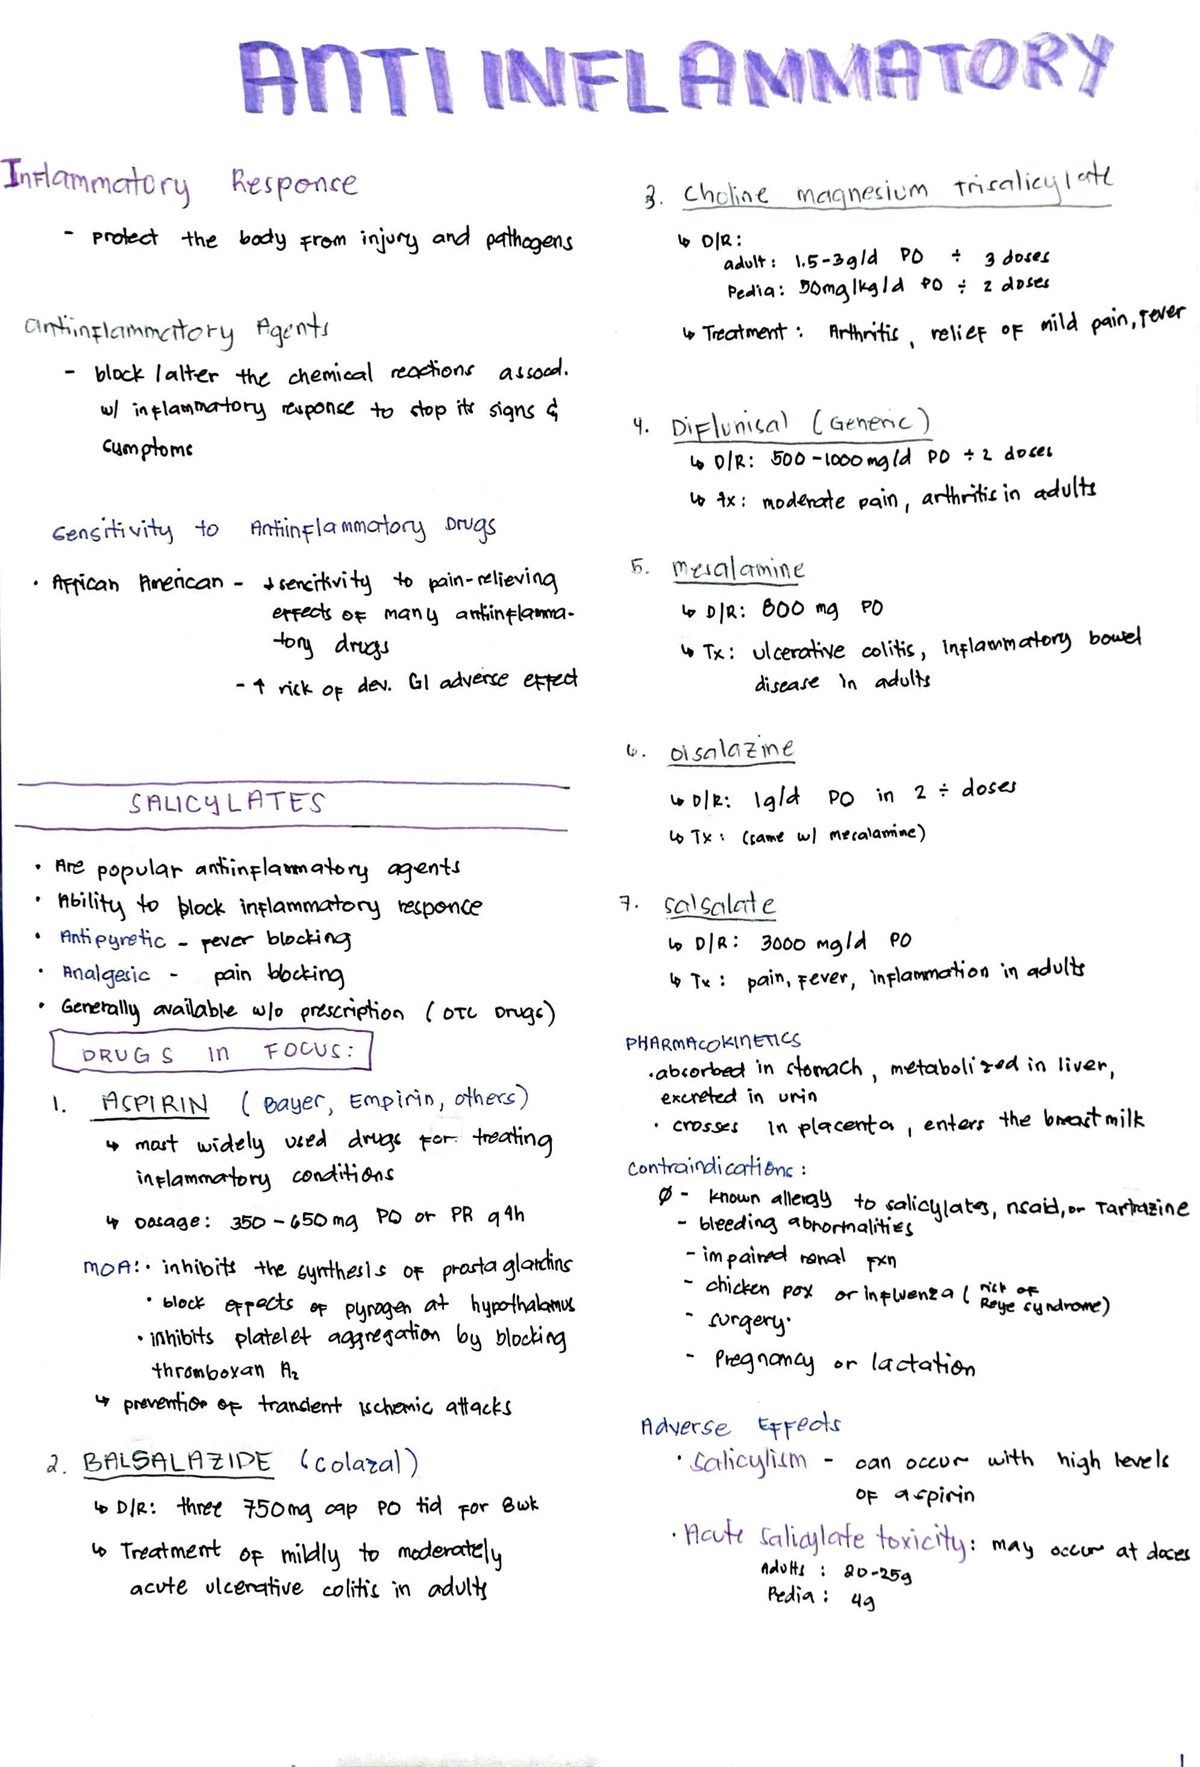 ANTI INFLAMMATORY
Inflammatory Response
- protect the body from injury and pathogens
Antiinflammatory Agents
- block / alter the chemical reactions assoc.
w/ inflammatory response to stop its signs &
symptoms
Sensitivity to Antiinflammatory Drugs
• African American - ↓ sensitivity to pain-relieving
effects of many antiinflamma-
tory drugs
- ↑ risk of dev. GI adverse effect
SALICYLATES
• Are popular antiinflammatory agents
• Ability to block inflammatory response
• Antipyretic - fever blocking
• Analgesic - pain blocking
• Generally available w/o prescription (OTC Drugs)
DRUGS in FOCUS:
1. ASPIRIN (Bayer, Empirin, others)
↳ most widely used drugs for treating
inflammatory conditions
↳ Dosage: 350-650mg PO or PR q4h
MOA: • inhibits the synthesis of prostaglandins
• block effects of pyrogen at hypothalamus
• inhibits platelet aggregation by blocking
thromboxan A₂
↳ prevention of transient ischemic attacks
2. BALSALAZIDE (Colazal)
↳ D/R: three 750mg cap PO tid for 8wk
↳ Treatment of mildly to moderately
acute ulcerative colitis in adults
3. Choline magnesium Trisalicylate
↳ D/R:
adult: 1.5-3g/d PO ÷ 3 doses
Pedia: 50mg/kg/d PO ÷ 2 doses
↳ Treatment: Arthritis, relief of mild pain, fever
4. Diflunisal (Generic)
↳ D/R: 500-1000mg/d PO ÷ 2 doses
↳ tx: moderate pain, arthritis in adults
5. mesalamine
↳ D/R: 800 mg PO
↳ Tx: ulcerative colitis, inflammatory bowel
disease in adults
6. Olsalazine
↳ D/R: 1g/d PO in 2 ÷ doses
↳ Tx: (same w/ mesalamine)
7. Salsalate
↳ D/R: 3000 mg/d PO
↳ Tx: pain, fever, inflammation in adults
PHARMACOKINETICS
• absorbed in stomach, metabolized in liver,
excreted in urin
• crosses in placenta, enters the breastmilk
Contraindications:
Ø - known allergy to salicylates, nsaid, or Tartrazine
- bleeding abnormalities
- impaired renal fxn
- chicken pox or influenza (risk of
Reye syndrome)
- surgery
- Pregnancy or lactation
Adverse Effects
• Salicylism - can occur with high levels
of aspirin
• Acute salicylate toxicity: may occur at doses
Adults: 20-25g
Pedia: 4g
1